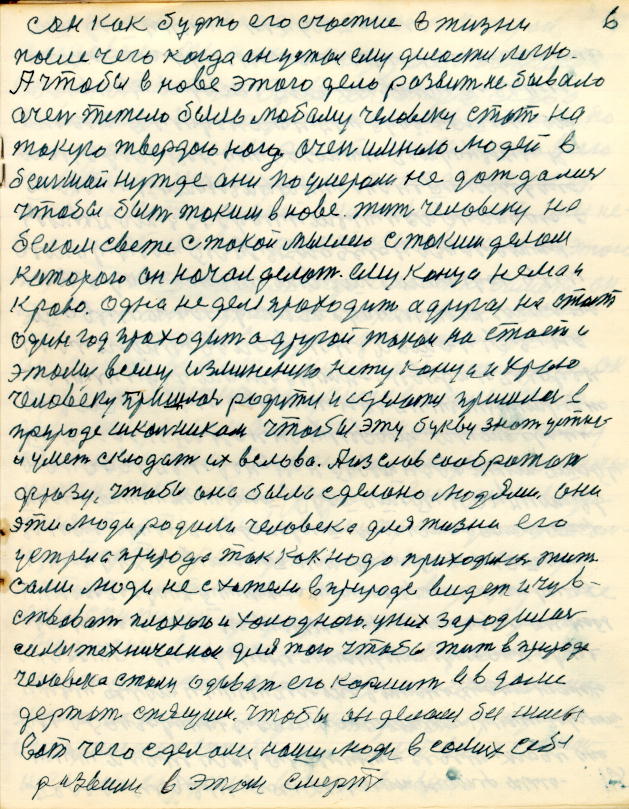 6
сон как будто его счастие в жизни
после чего когда он устал ему делости легко.
А чтобы в нове этого дело развит не бывало
очен тежело было любому человеку стат на
такую твердою ногу. очен имного людей в
большой нужде они поумерали не дождалис
чтобы быт таким в нове. жит человеку на
белом свете с такой мыслею с таким делом
которого он начал делат. ему конца нема и
краю. одна неделя проходит а другая на стоит
один год проходит а другой такой на стает и
этому всему изминению нету конца и краю
человеку пришлос родится и сделаты пришлос в
природе школником чтобы эту букву знат устно
и умет складат их вслова. Аизслов соображат
фразу. чтобы она была сделано людями. они
эти люди родили человека для жизни его
устрела природа так как надо приходилос жит
сами люди не схотели в природе видет и чув-
ствоват плохого и холодного. уних зародилас
силы техническое для того чтобы жит в природе
человека стали одеват его кормит и в доме
держат спящим. чтобы он делал без силы
вот чего сделали наши люди в самих себе
развили в этом смерт